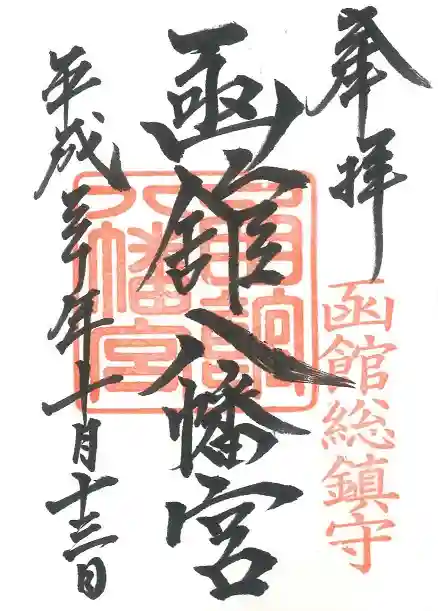 奉拝
函館総鎮守
函館八幡宮
平成三十年十月十三日